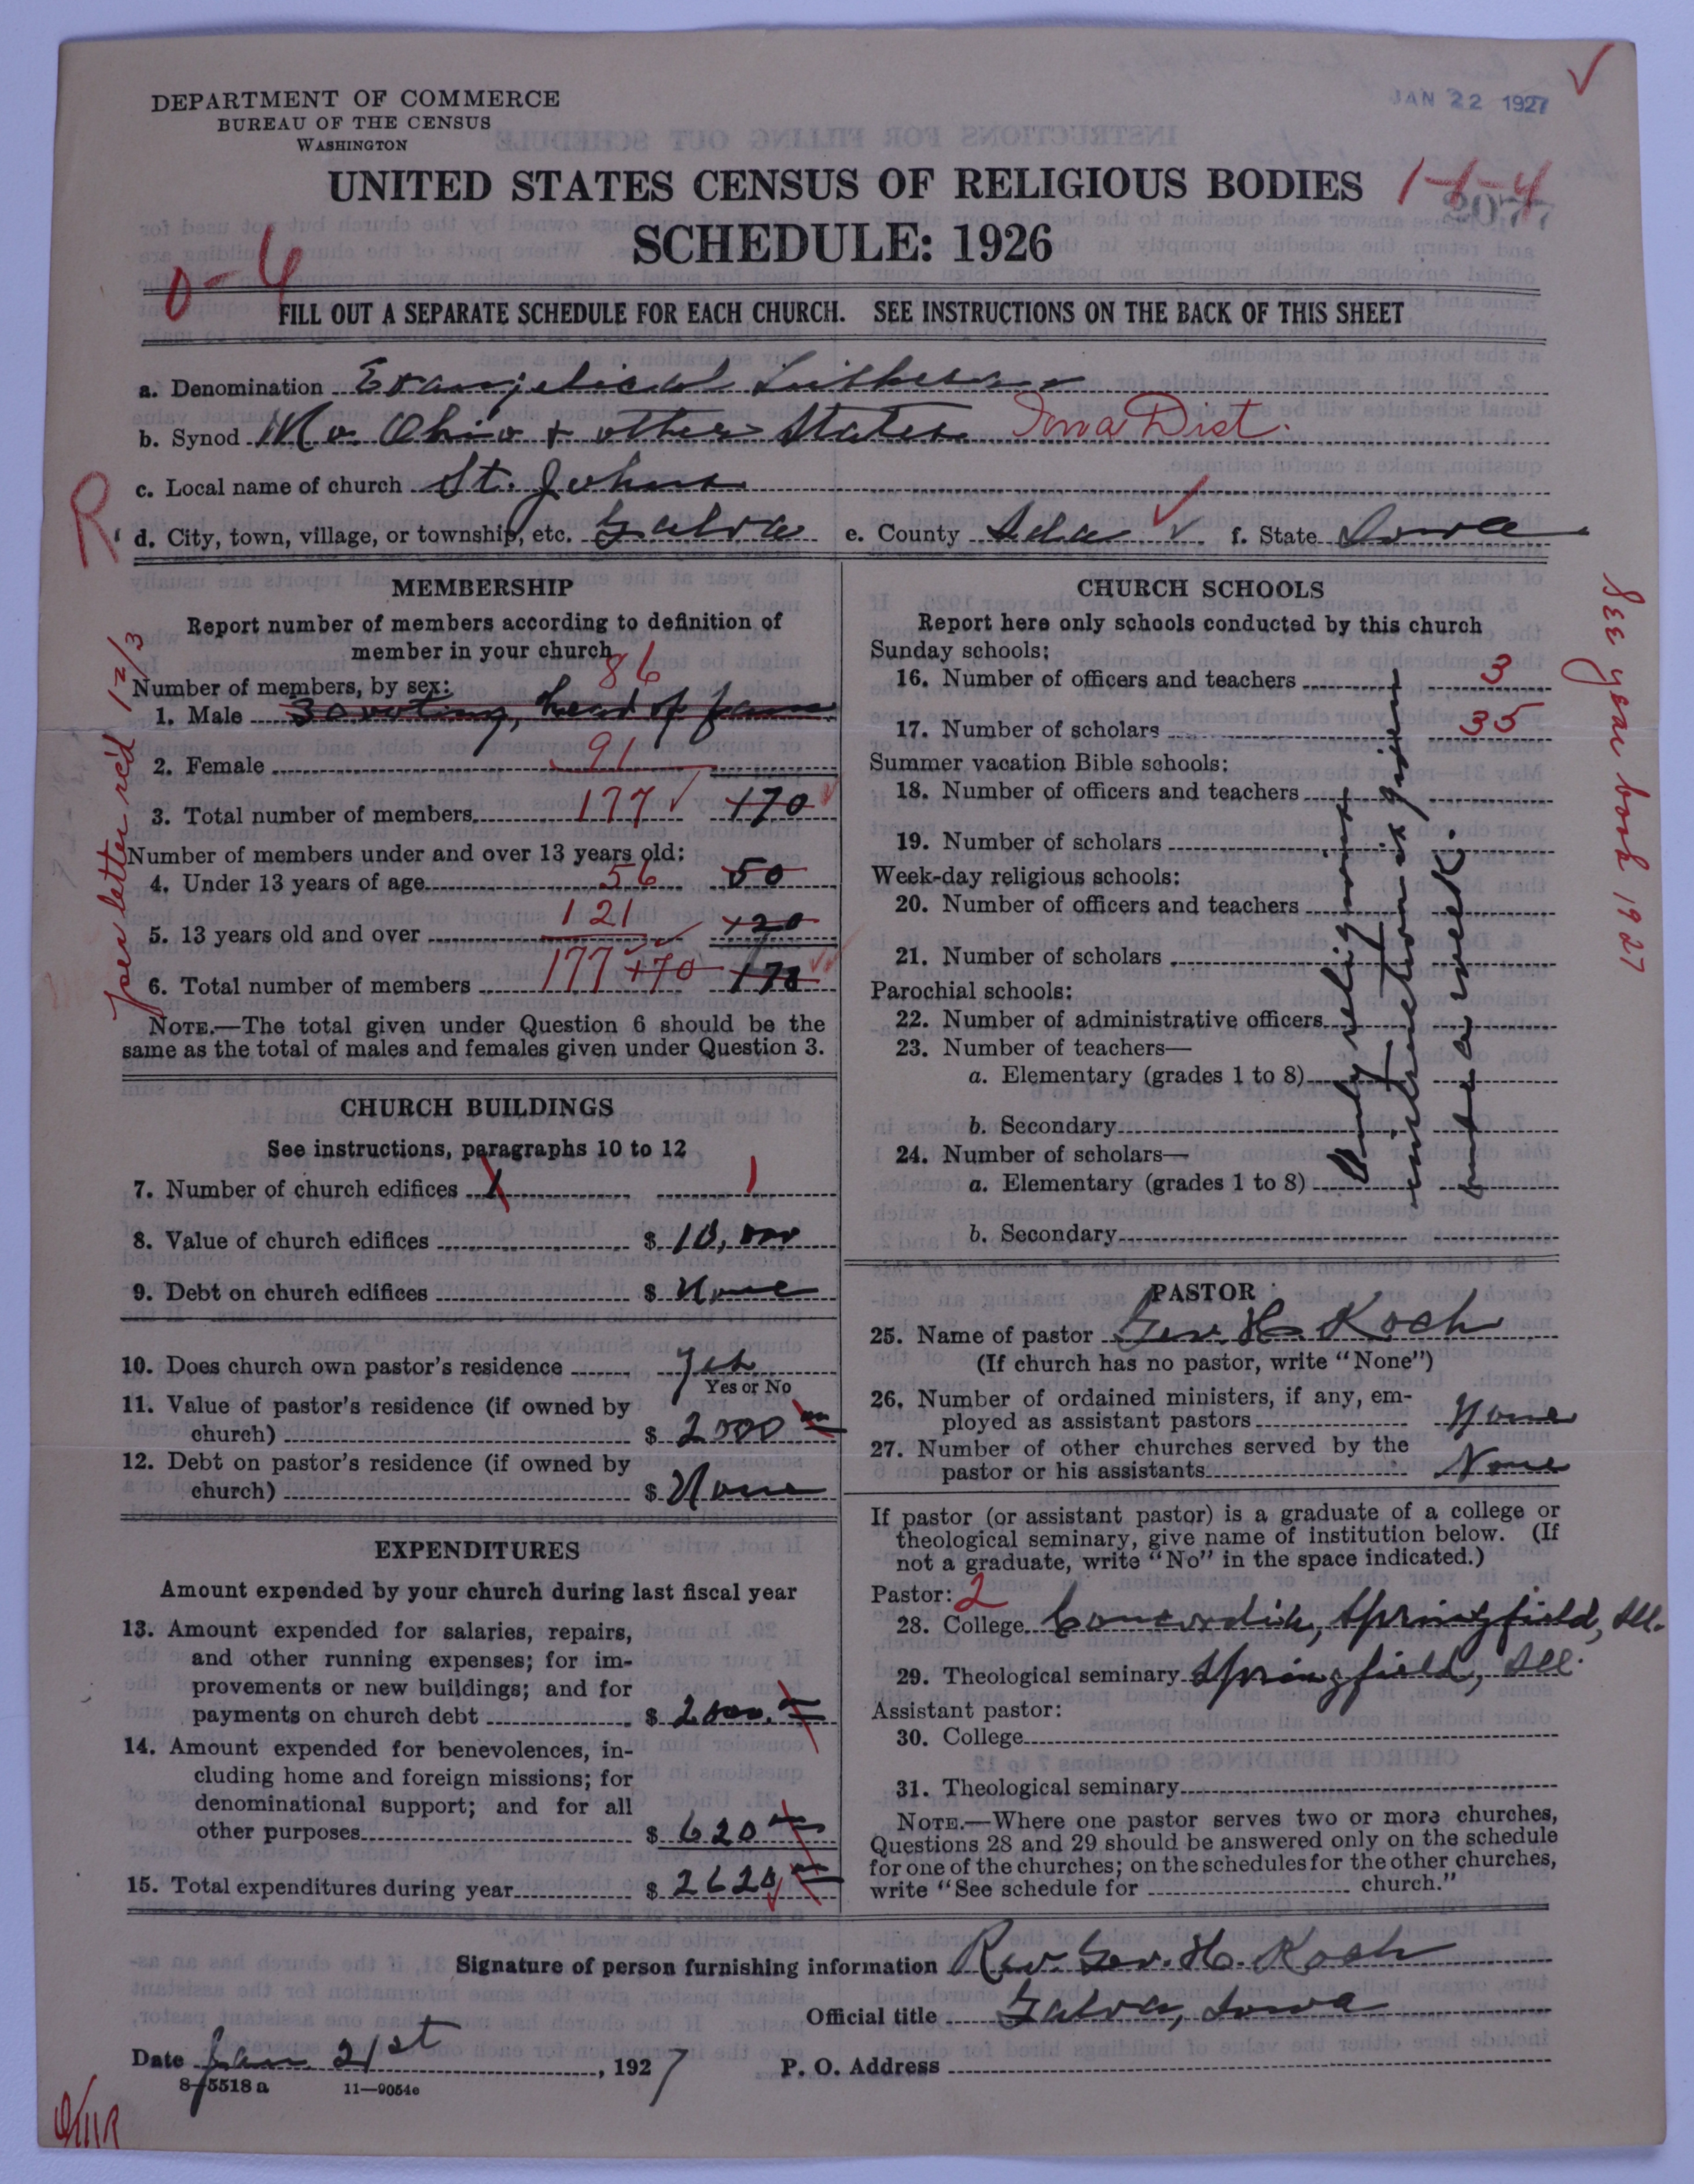 JAN 22 1927
DEPARTMENT OF COMMERCE
BUREAU OF THE CENSUS
WASHINGTON
UNITED STATES CENSUS OF RELIGIOUS BODIES
1-1-4
2077
SCHEDULE: 1926
0-4
FILL OUT A SEPARATE SCHEDULE FOR EACH CHURCH. SEE INSTRUCTIONS ON THE BACK OF THIS SHEET
a. Denomination Evangelical Lutheran
b. Synod Mo. Ohio + other States Iowa Dist.
c. Local name of church St. Johns
R
d. City, town, village, or township, etc. Galva e. County Ida f. State Iowa
MEMBERSHIP
Report number of members according to definition of
member in your church
Number of members, by sex:
86
1. Male 30 voting, head of fam
2. Female 91
3. Total number of members 177 170
Number of members under and over 13 years old:
4. Under 13 years of age 56 50
5. 13 years old and over 121 120
6. Total number of members 177 170 170
per letter rec'd 12/3
NOTE.—The total given under Question 6 should be the
same as the total of males and females given under Question 3.
CHURCH BUILDINGS
See instructions, paragraphs 10 to 12
7. Number of church edifices 1 1
8. Value of church edifices $ 10,000
9. Debt on church edifices $ None
10. Does church own pastor's residence Yes
Yes or No
11. Value of pastor's residence (if owned by
church) $ 2000
12. Debt on pastor's residence (if owned by
church) $ None
EXPENDITURES
Amount expended by your church during last fiscal year
13. Amount expended for salaries, repairs,
and other running expenses; for im-
provements or new buildings; and for
payments on church debt $ 2000.
14. Amount expended for benevolences, in-
cluding home and foreign missions; for
denominational support; and for all
other purposes $ 620
15. Total expenditures during year $ 2620
CHURCH SCHOOLS
Report here only schools conducted by this church
Sunday schools:
16. Number of officers and teachers 3
17. Number of scholars 35
Summer vacation Bible schools:
18. Number of officers and teachers
19. Number of scholars
Week-day religious schools:
20. Number of officers and teachers
21. Number of scholars
Parochial schools:
22. Number of administrative officers
23. Number of teachers—
a. Elementary (grades 1 to 8)
b. Secondary
24. Number of scholars—
a. Elementary (grades 1 to 8)
b. Secondary
Only religious
instruction given
once a week.
See year book 1927
PASTOR
25. Name of pastor Geo. H. Koch
(If church has no pastor, write "None")
26. Number of ordained ministers, if any, em-
ployed as assistant pastors None
27. Number of other churches served by the
pastor or his assistants None
If pastor (or assistant pastor) is a graduate of a college or
theological seminary, give name of institution below. (If
not a graduate, write "No" in the space indicated.)
Pastor: 2
28. College Concordia, Springfield, Ill.
29. Theological seminary Springfield, Ill.
Assistant pastor:
30. College
31. Theological seminary
NOTE.—Where one pastor serves two or more churches,
Questions 28 and 29 should be answered only on the schedule
for one of the churches; on the schedules for the other churches,
write "See schedule for church."
Signature of person furnishing information Rev. Geo. H. Koch
Official title Galva, Iowa
Date Jan. 21st, 1927 P. O. Address
8-5518 a 11-9054e